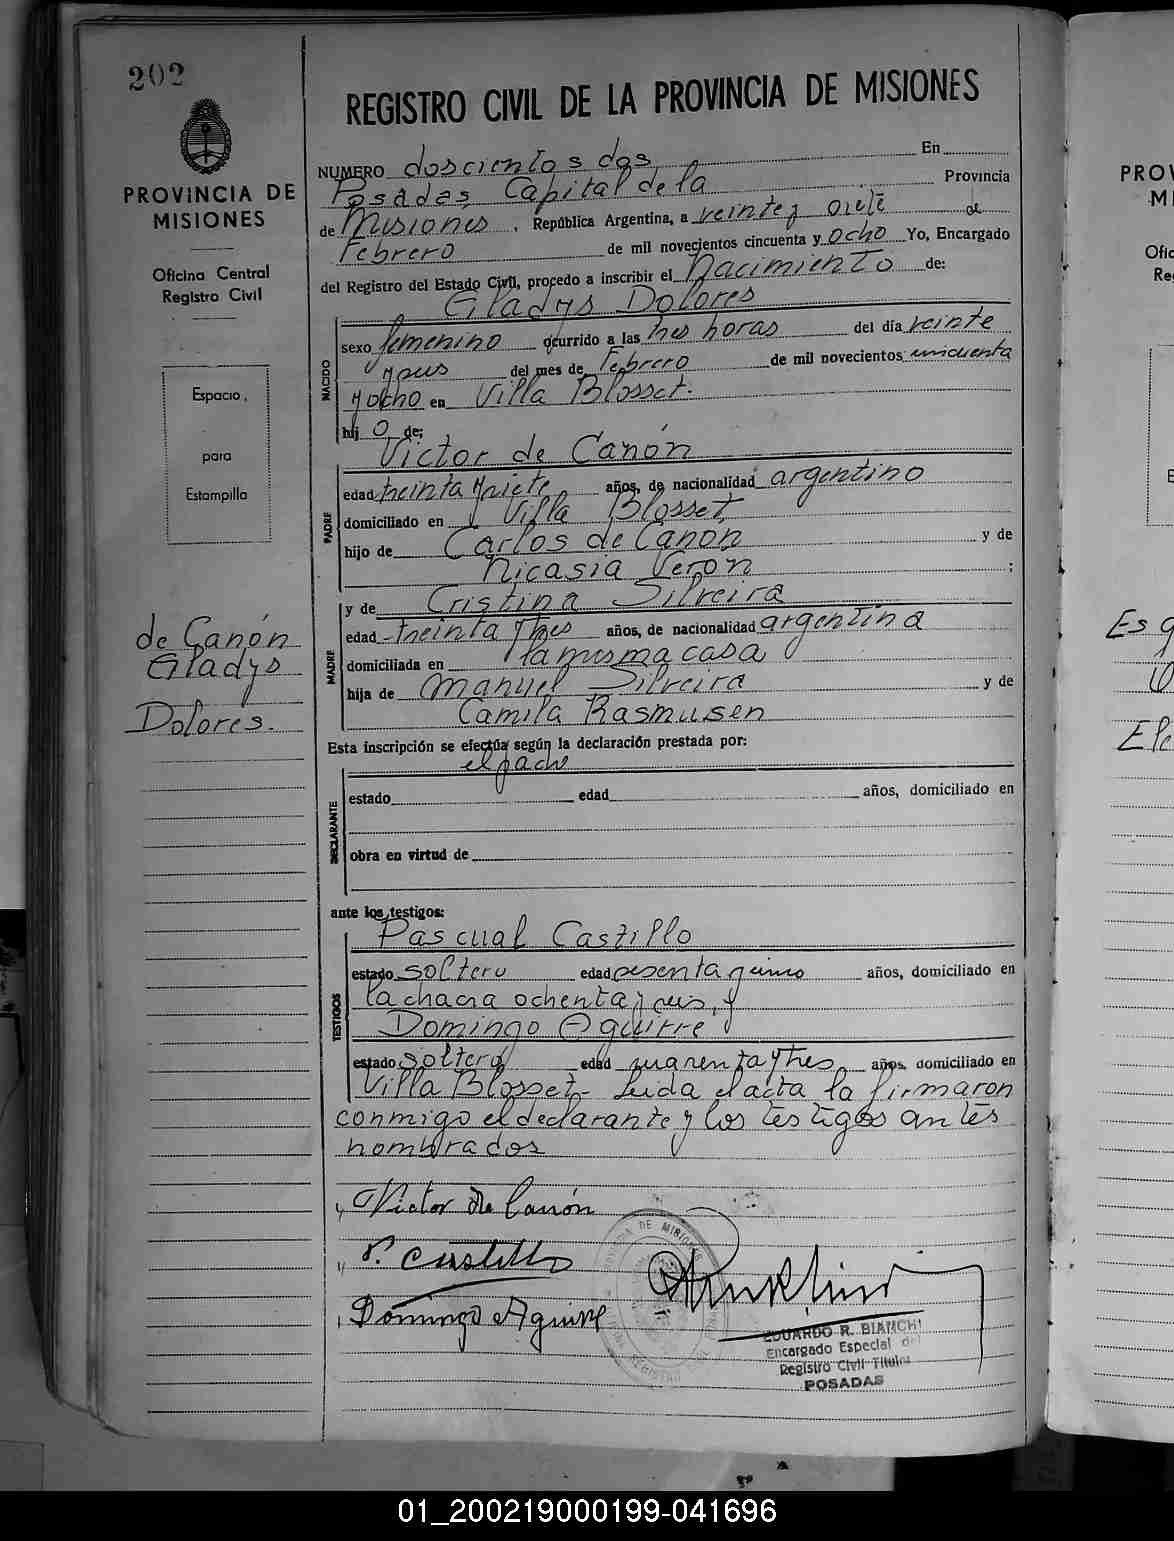 202
PROVINCIA DE
MISIONES
Oficina Central
Registro Civil
Espacio,
para
Estampilla
de Canón
Gladys
Dolores.
REGISTRO CIVIL DE LA PROVINCIA DE MISIONES
NUMERO doscientos dos En
Posadas Capital de la Provincia
de Misiones, República Argentina, a veinte y siete de
Febrero de mil novecientos cincuenta y ocho Yo, Encargado
del Registro del Estado Civil, procedo a inscribir el nacimiento de:
Gladys Dolores
NACIDO
sexo femenino ocurrido a las tres horas del día veinte
y seis del mes de Febrero de mil novecientos cincuenta
y ocho en Villa Blosset.
hij o de:
Victor de Canón
PADRE
edad treinta y siete años, de nacionalidad argentino
domiciliado en Villa Blosset,
hijo de Carlos de Canón y de
Nicasia Verón ;
y de Cristina Silveira
MADRE
edad treinta y tres años, de nacionalidad argentina
domiciliada en la misma casa
hija de Manuel Silveira y de
Camila Rasmusen
Esta inscripción se efectúa según la declaración prestada por:
el padre
DECLARANTE
estado edad años, domiciliado en
obra en virtud de
ante los testigos:
Pascual Castillo
TESTIGOS
estado soltero edad sesenta y cinco años, domiciliado en
la chacra ochenta y seis, y
Domingo Aguirre
estado soltero edad cuarenta y tres años, domiciliado en
Villa Blosset- Leida el acta la firmaron
conmigo el declarante y los testigos antes
nombrados
Victor de Canón
P. Castillo
Domingo Aguirre
EDUARDO R. BIANCHI
Encargado Especial del
Registro Civil Titular
POSADAS
PROV
MI
Ofic
Re
E
Es
Ele
01_200219000199-041696